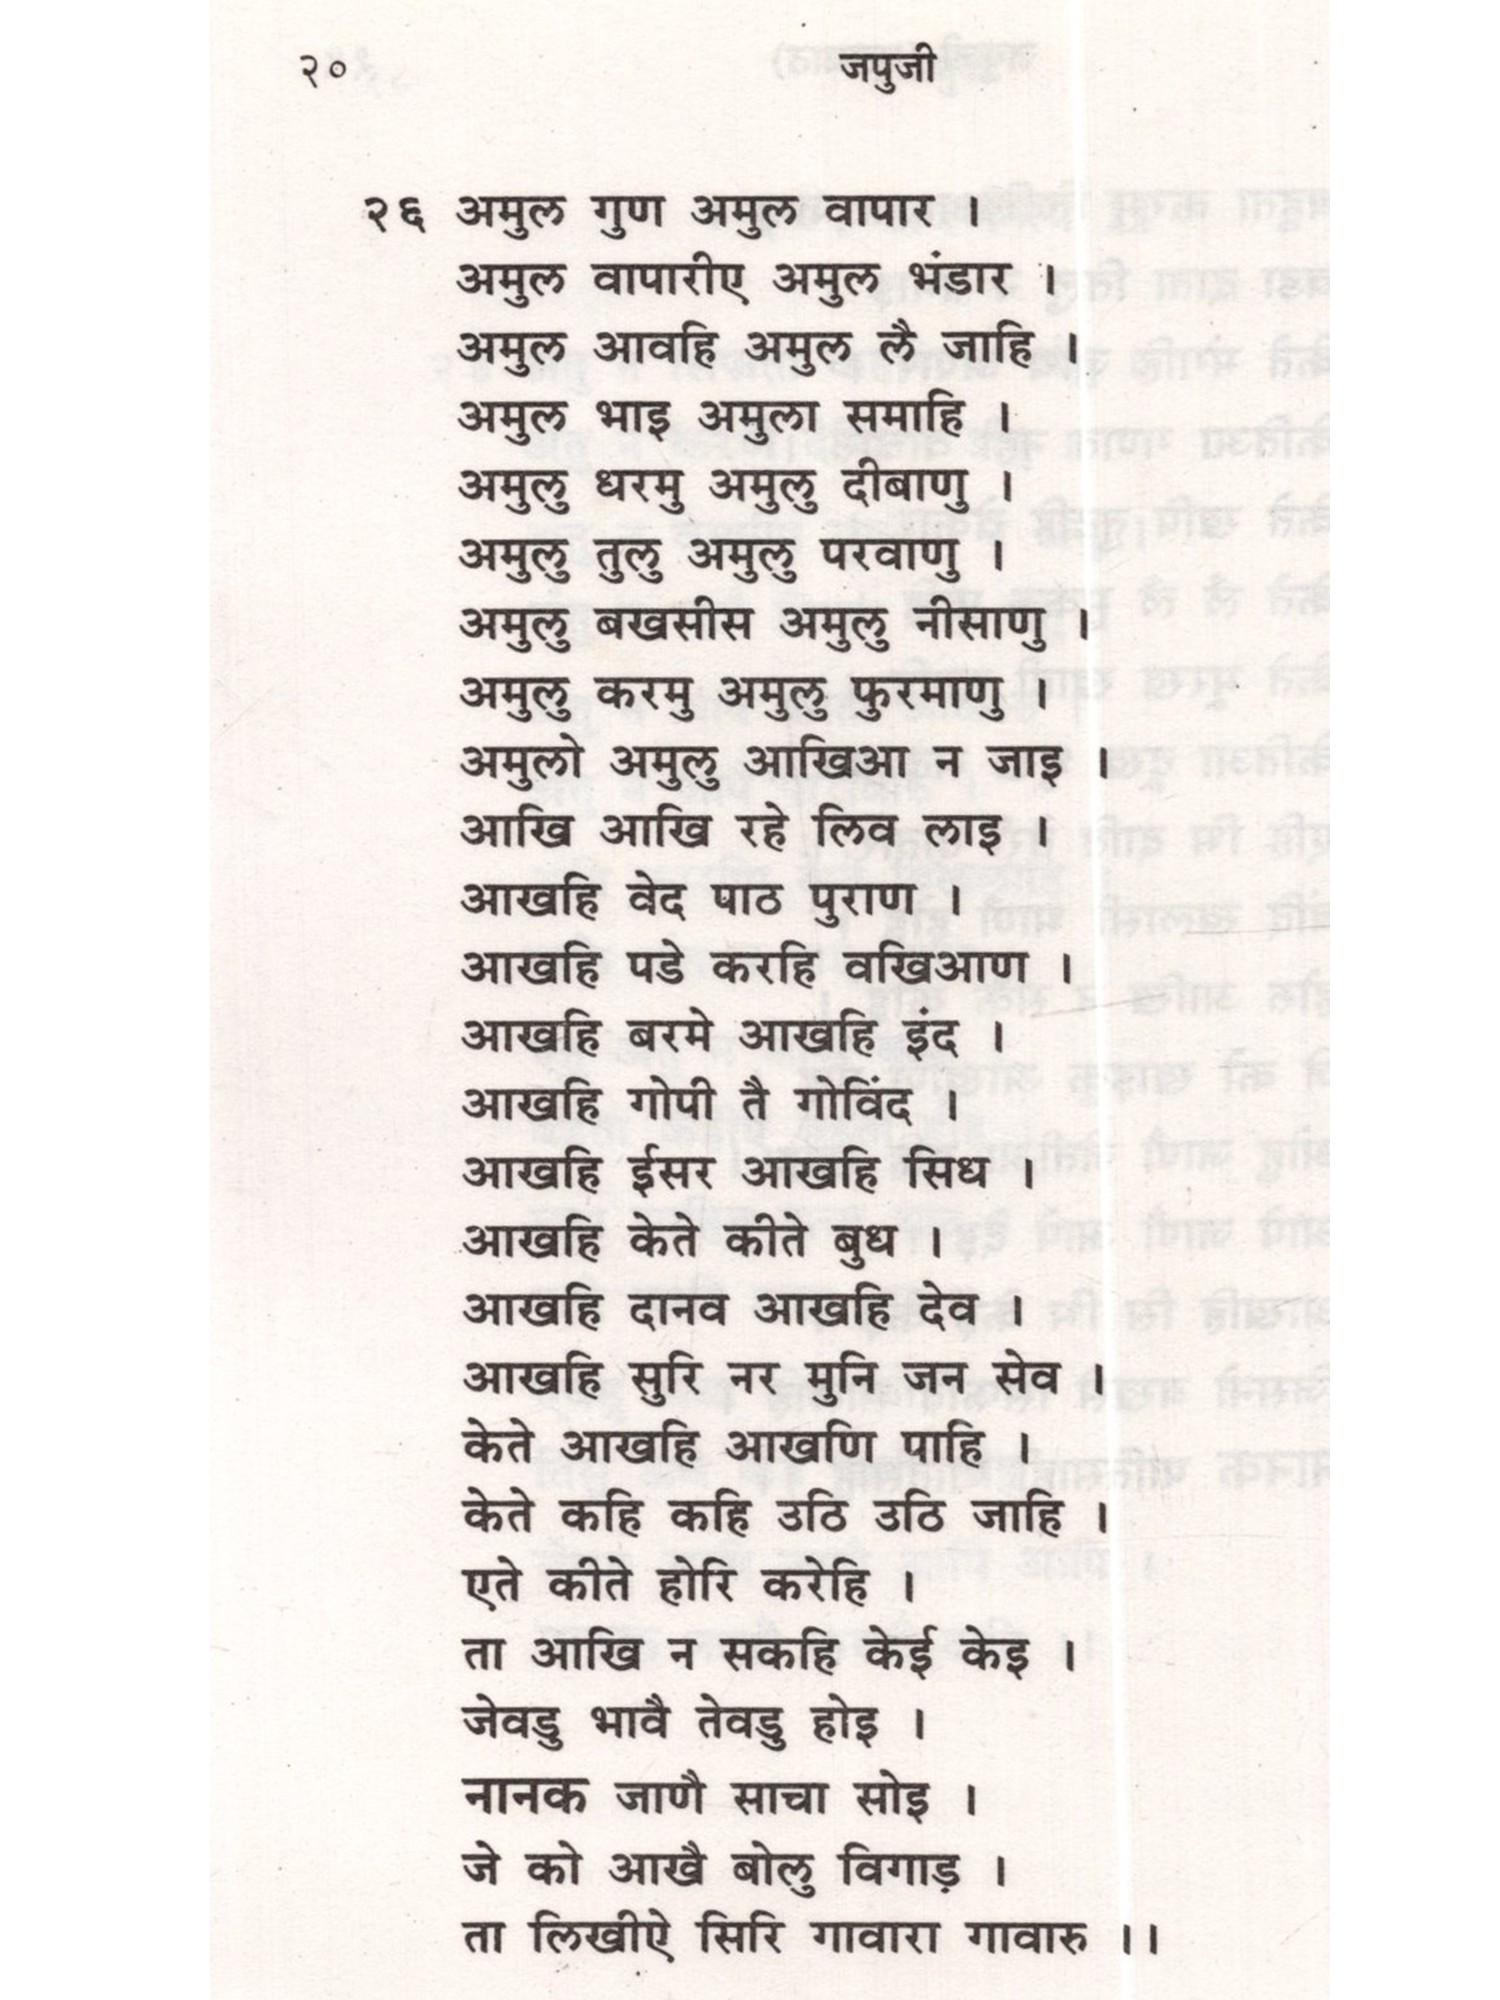 २० जपुजी
२६ अमुल गुण अमुल वापार ।
अमुल वापारीए अमुल भंडार ।
अमुल आवहि अमुल लै जाहि ।
अमुल भाइ अमुला समाहि ।
अमुलु धरमु अमुलु दीबाणु ।
अमुलु तुलु अमुलु परवाणु ।
अमुलु बखसीस अमुलु नीसाणु ।
अमुलु करमु अमुलु फुरमाणु ।
अमुलो अमुलु आखिआ न जाइ ।
आखि आखि रहे लिव लाइ ।
आखहि वेद पाठ पुराण ।
आखहि पडे करहि वखिआण ।
आखहि बरमे आखहि इंद ।
आखहि गोपी तै गोविंद ।
आखहि ईसर आखहि सिध ।
आखहि केते कीते बुध ।
आखहि दानव आखहि देव ।
आखहि सुरि नर मुनि जन सेव ।
केते आखहि आखणि पाहि ।
केते कहि कहि उठि उठि जाहि ।
एते कीते होरि करेहि ।
ता आखि न सकहि केई केइ ।
जेवडु भावै तेवडु होइ ।
नानक जाणै साचा सोइ ।
जे को आखै बोलु विगाड़ ।
ता लिखीऐ सिरि गावारा गावारु ।।